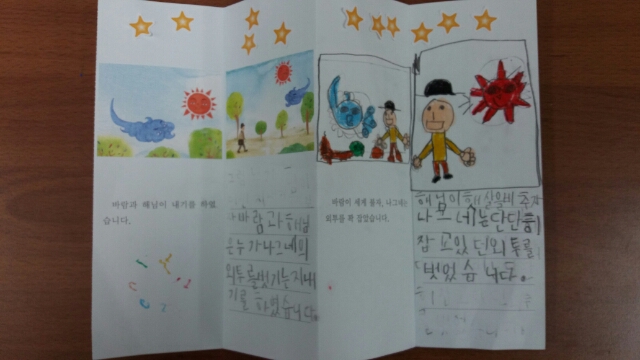 바람과 해님이 내기를 하였
습니다.
바람과해님
은누가나그네의
외투를벗기는지내
기를 하였습니다.
바람이 세게 불자, 나그네는
외투를 꽉 잡았습니다.
해님이 햇살을비추자
나그네는단단히
잠그고있던외투를
벗었습니다.